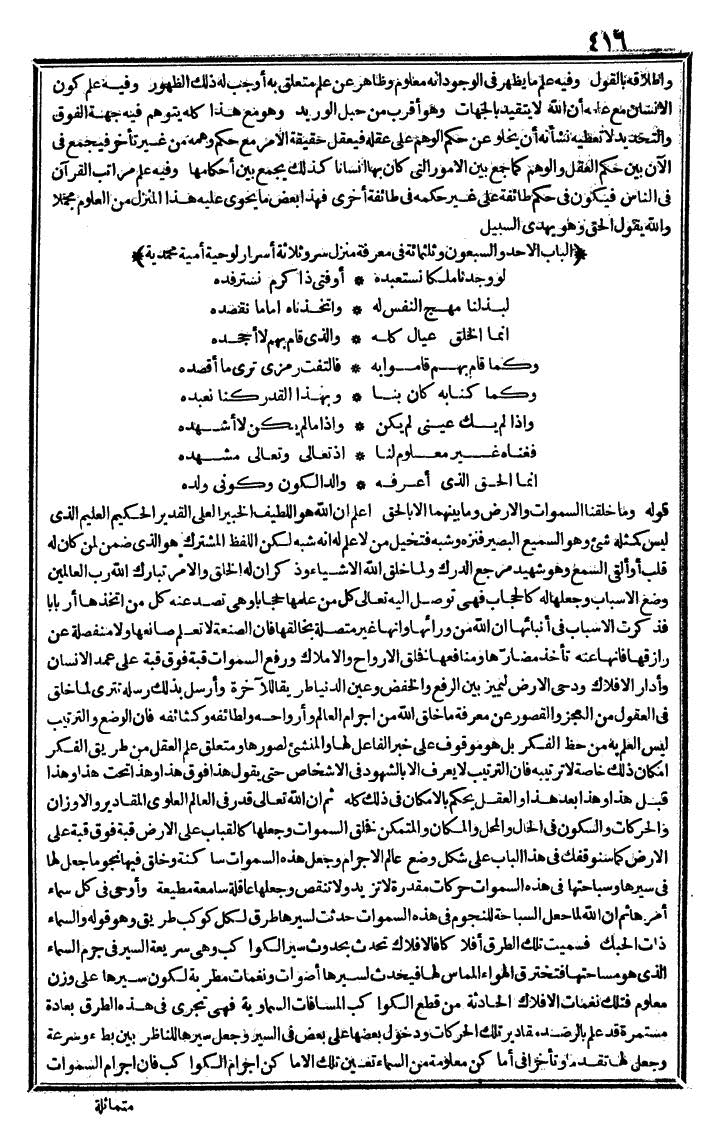 ٤١٦
واطلاقه بالقول وفيه علم ما يظهر فى الوجود انه معلوم وظاهر عن علم متعلق به أوجب له ذلك الظهور وفيه علم كون
الانسان مع علمه أن الله لا يتقيد بالجهات وهو أقرب من حبل الوريد وهو مع هذا كله يتوهم فيه جهة الفوق
والتحديد لا تعطيه نشأته أن يخلو عن حكم الوهم على عقله فيعقل حقيقة الامر مع حكم وهمه من غير تأخر فيجمع فى
الآن بين حكم العقل والوهم كما جمع بين الامور التى كان بها انسانا كذلك يجمع بين أحكامها وفيه علم مراتب القرآن
فى الناس فيكون فى حكم طائفة على غير حكمه فى طائفة أخرى فهذا بعض ما يحوى عليه هذا المنزل من العلوم مجملا
والله يقول الحق وهو يهدى السبيل
﴿الباب الاحد والسبعون وثلثمائة فى معرفة منزل سر وثلاثة أسرار لوحية أمية محمدية﴾
لو وجدنا ملكا نستعبده * أو فتى ذا كرم نسترفده
لبذلنا مهج النفس له * واتخذناه اماما نقصده
انما الخلق عيال كله * والذى قام بهم لا أجحده
وكما قام بهم قاموا به * فالتفت رمزى ترى ما أقصده
وكما كنا به كان بنا * وبهذا القدر كنا نعبده
واذا لم يك عينى لم يكن * واذا ما لم يكن لا أشهده
فغناه غير معلوم لنا * اذ تعالى وتعالى مشهده
انما الحق الذى أعرفه * والد الكون وكونى ولده
قوله وما خلقنا السموات والارض وما بينهما الا بالحق اعلم ان الله هو اللطيف الخبير العلى القدير الحكيم العليم الذى
ليس كمثله شئ وهو السميع البصير فنزه وشبه فتخيل من لا علم له انه شبه لكن اللفظ المشترك هو الذى ضمن لمن كان له
قلب أو ألقى السمع وهو شهيد مرجع الدرك ولما خلق الله الاشياء وذكر ان له الخلق والامر تبارك الله رب العالمين
وضع الاسباب وجعلها له كالحجاب فهى توصل اليه تعالى كل من علمها حجابا وهى تصد عنه كل من اتخذها أربابا
فذكرت الاسباب فى أنبائها ان الله من ورائها وانها غير متصلة بخالقها فان الصنعة لا تعلم صانعها ولا منفصلة عن
رازقها فانها عنه تأخذ مضارها ومنافعها فخلق الارواح والاملاك ورفع السموات قبة فوق قبة على عمد الانسان
وأدار الافلاك ودحى الارض ليميز بين الرفع والخفض وعين الدنيا طريقا للآخرة وأرسل بذلك رسله تترى لما خلق
فى العقول من العجز والقصور عن معرفة ما خلق الله من اجرام العالم وأرواحه ولطائفه وكثائفه فان الوضع والترتيب
ليس العلم به من حظ الفكر بل هو موقوف على خبر الفاعل لها والمنشئ لصورها ومتعلق علم العقل من طريق الفكر
امكان ذلك خاصة لا ترتيبه فان الترتيب لا يعرف الا بالشهود فى الاشخاص حتى يقول هذا فوق هذا وهذا تحت هذا وهذا
قبل هذا وهذا بعد هذا والعقل يحكم بالامكان فى ذلك كله ثم ان الله تعالى قدر فى العالم العلوى المقادير والاوزان
والحركات والسكون فى الحال والمحل والمكان والمتمكن فخلق السموات وجعلها كالقباب على الارض قبة فوق قبة على
الارض كما سنوقفك فى هذا الباب على شكل وضع عالم الاجرام وجعل هذه السموات ساكنة وخلق فيها نجوما جعل لها
فى سيرها وسباحتها فى هذه السموات حركات مقدرة لا تزيد ولا تنقص وجعلها عاقلة سامعة مطيعة وأوحى فى كل سماء
أمرها ثم ان الله لما جعل السباحة للنجوم فى هذه السموات حدثت لسيرها طرق لكل كوكب طريق وهو قوله والسماء
ذات الحبك فسميت تلك الطرق أفلاكا فالافلاك تحدث بحدوث سير الكواكب وهى سريعة السير فى جرم السماء
الذى هو مساحتها فتخترق الهواء المماس لها فيحدث لسيرها أصوات ونغمات مطربة لكون سيرها على وزن
معلوم فتلك نغمات الافلاك الحادثة من قطع الكواكب المسافات السماوية فهى تجرى فى هذه الطرق بعادة
مستمرة قد علم بالرصد مقادير تلك الحركات ودخول بعضها على بعض فى السير وجعل سيرها للناظر بين بطء وسرعة
وجعل لها تقدما وتأخرا فى أماكن معلومة من السماء تعين تلك الاماكن اجرام الكواكب فان اجرام السموات
متماثلة